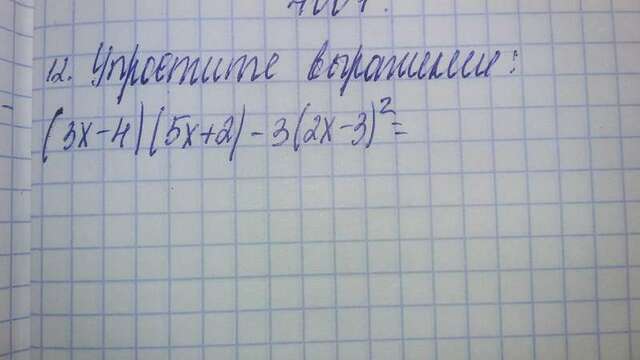 12. Упростите выражение:
(3x-4)(5x+2)-3(2x-3)²=